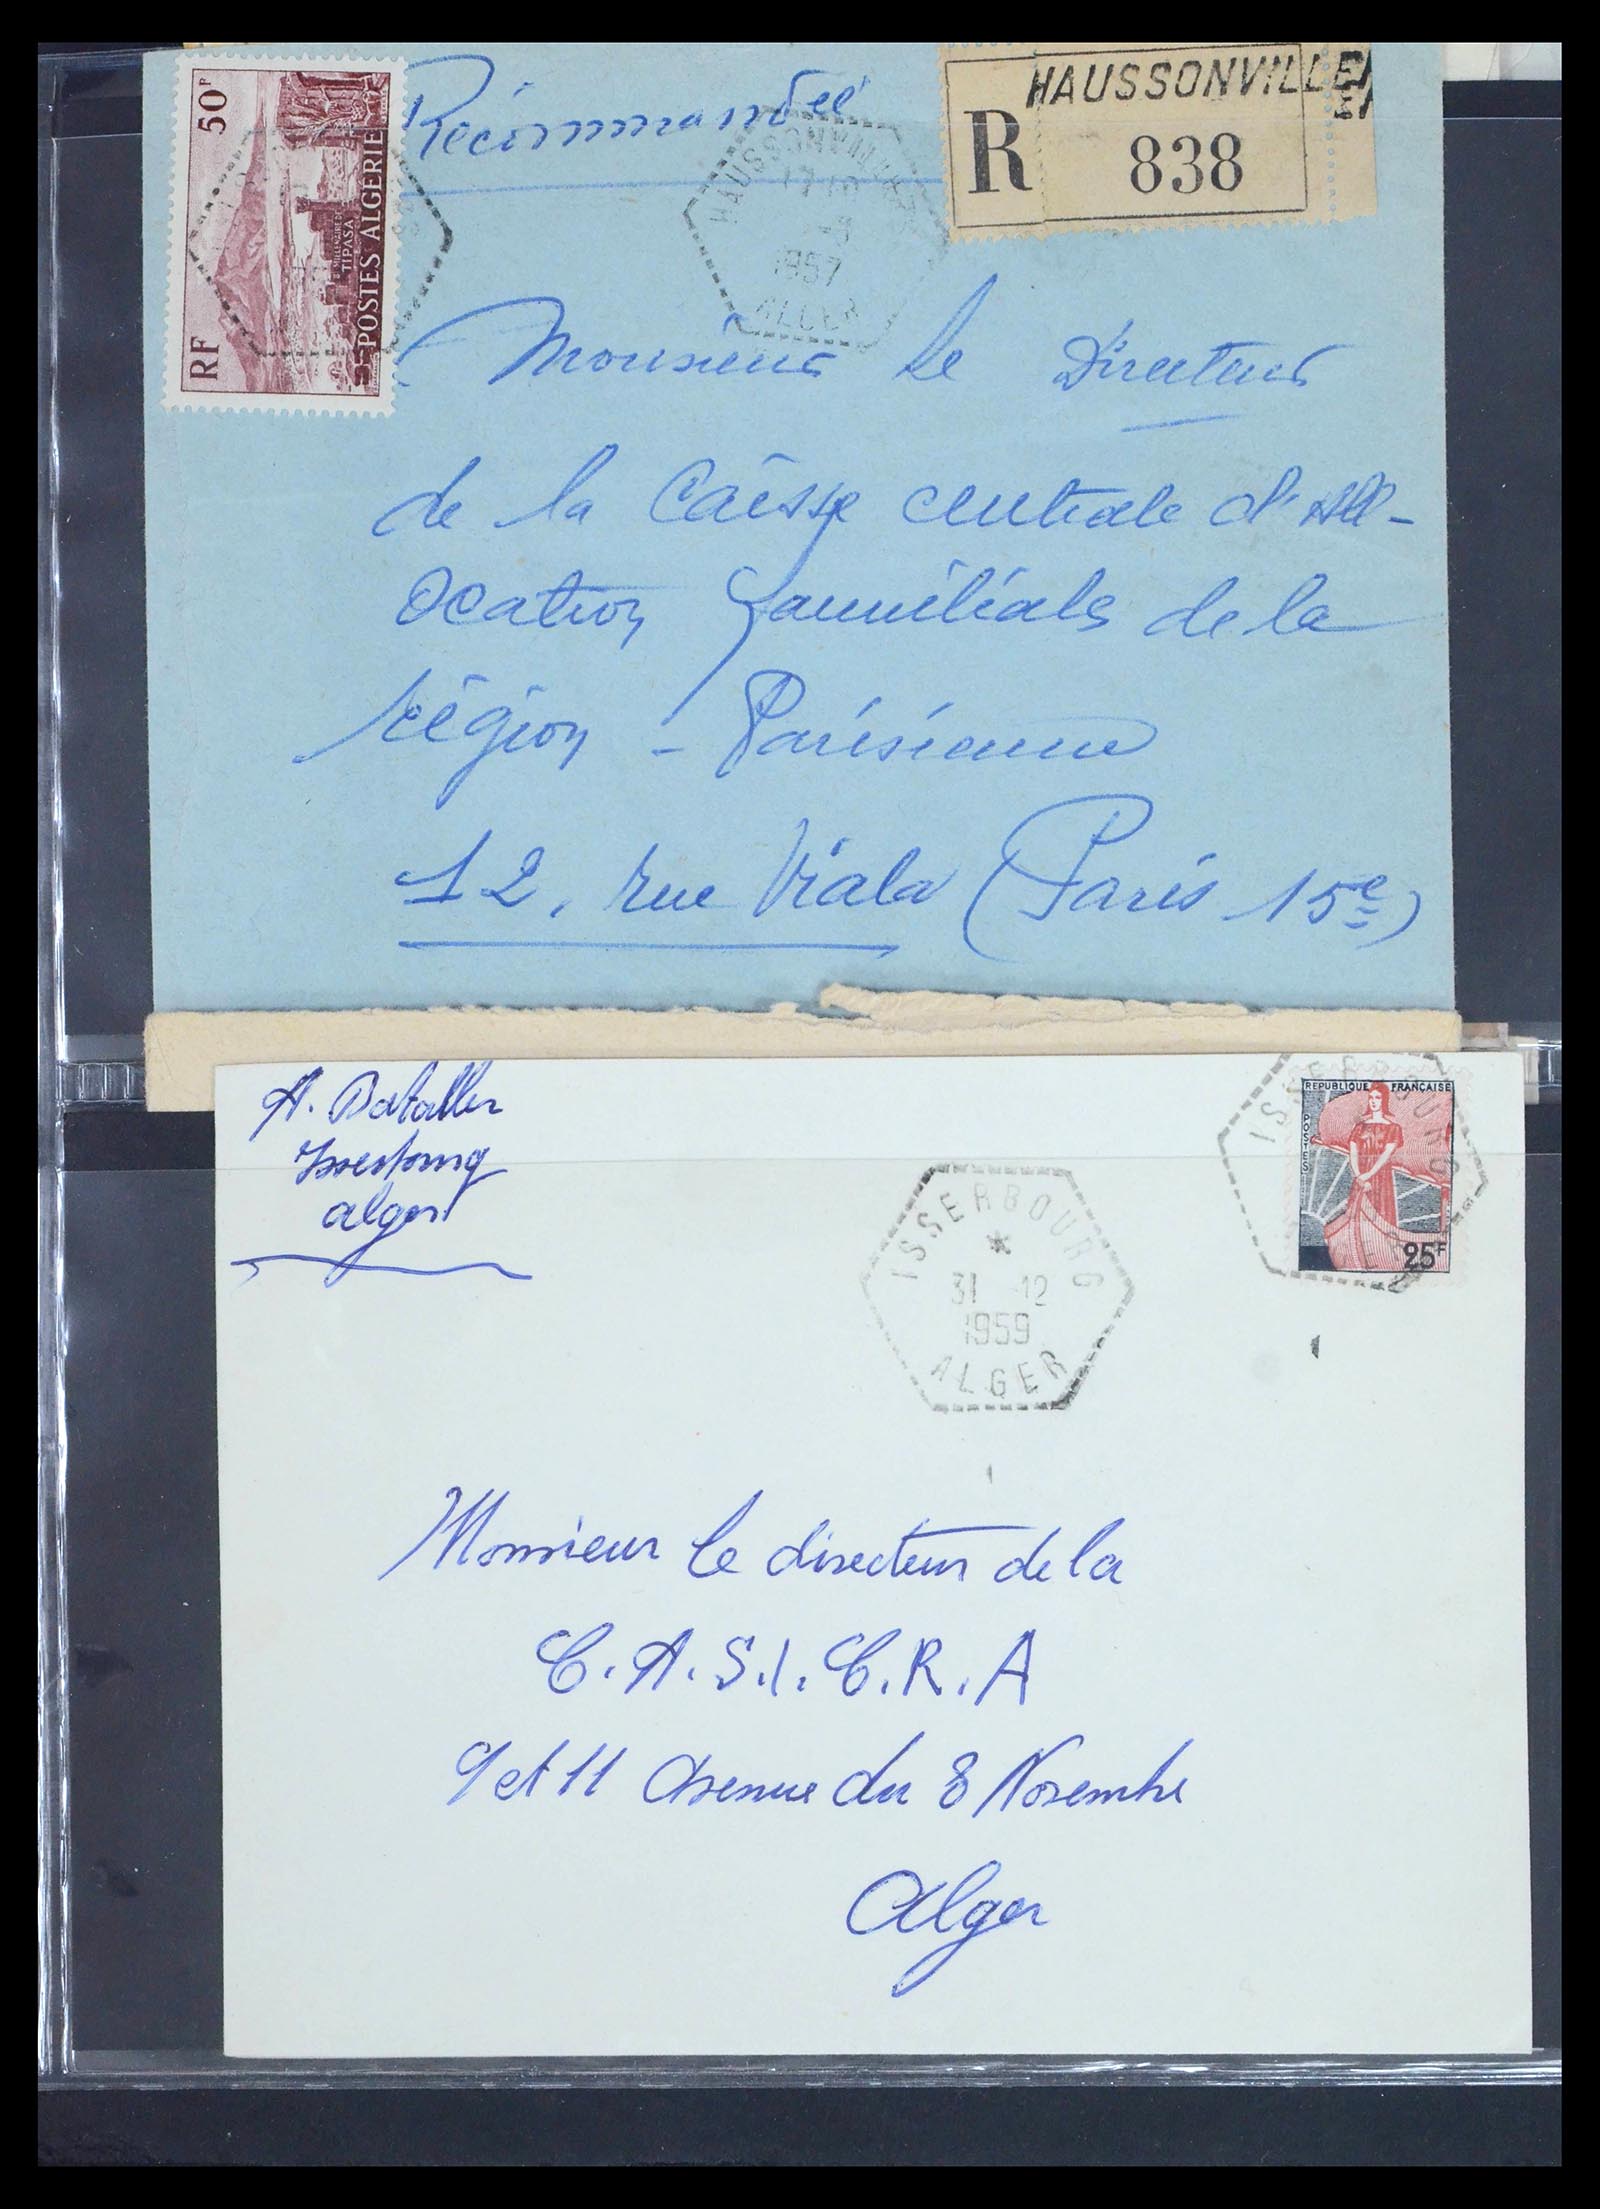 50F
RF
BIMILLENAIRE DE
TIPASA
POSTES ALGERIE
Récommandée
HAUSSONVILLER
R
838
HAUSSONVILLER
17 10
1957
ALGER
Monsieur le Directeur
de la Caisse centrale d'All-
ocation familiale de la
région - Parisienne
12, rue Viala (Paris 15e)
A. Bataller
Isserbourg
alger
ISSERBOURG
31 -12
1959
ALGER
ISSERBOURG
REPUBLIQUE FRANÇAISE
POSTES
25F
Monsieur le directeur de la
C.A.S.I.C.R.A
9 et 11 Avenue du 8 Novembre
Alger